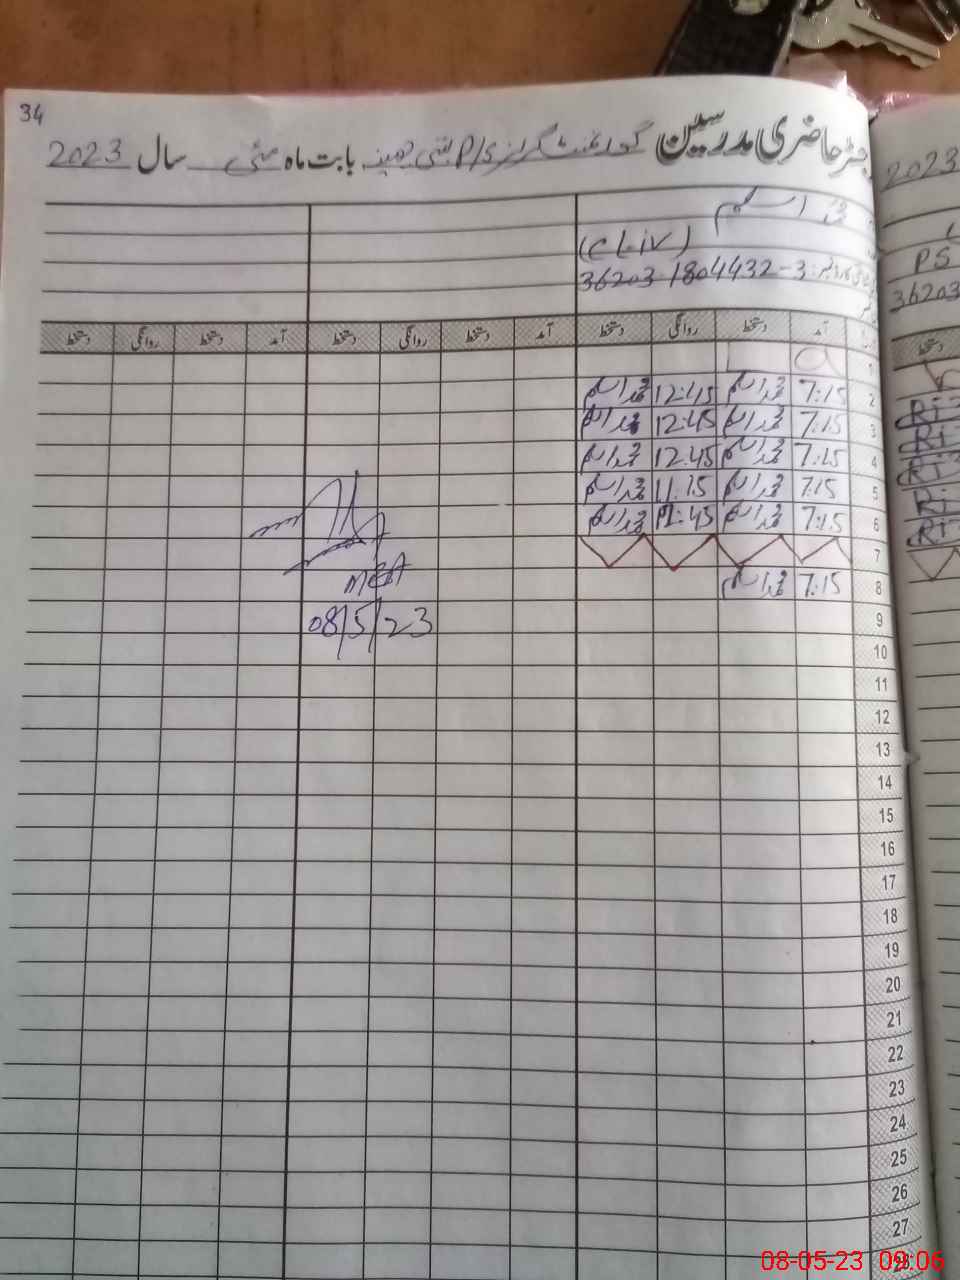 34
رجسٹر حاضری مدرسین گورنمنٹ گرلز P/S بابت ماہ مئی سال 2023
2023
محمد اسلم
(CL-IV)
PS
36203-1804432-3
36203
آمد دستخط روانگی دستخط آمد دستخط روانگی دستخط آمد دستخط روانگی دستخط
دستخط
1
2 7:15 محمد اسلم 12:45 محمد اسلم
3 7:15 محمد اسلم 12:45 محمد اسلم
4 7:15 محمد اسلم 12:45 محمد اسلم
5 7:15 محمد اسلم 11:15 محمد اسلم
6 7:15 محمد اسلم 12:45 محمد اسلم
7
8 7:15 محمد اسلم
MEA
08/5/23
9
10
11
12
13
14
15
16
17
18
19
20
21
22
23
24
25
26
27
28
08-05-23 09:06